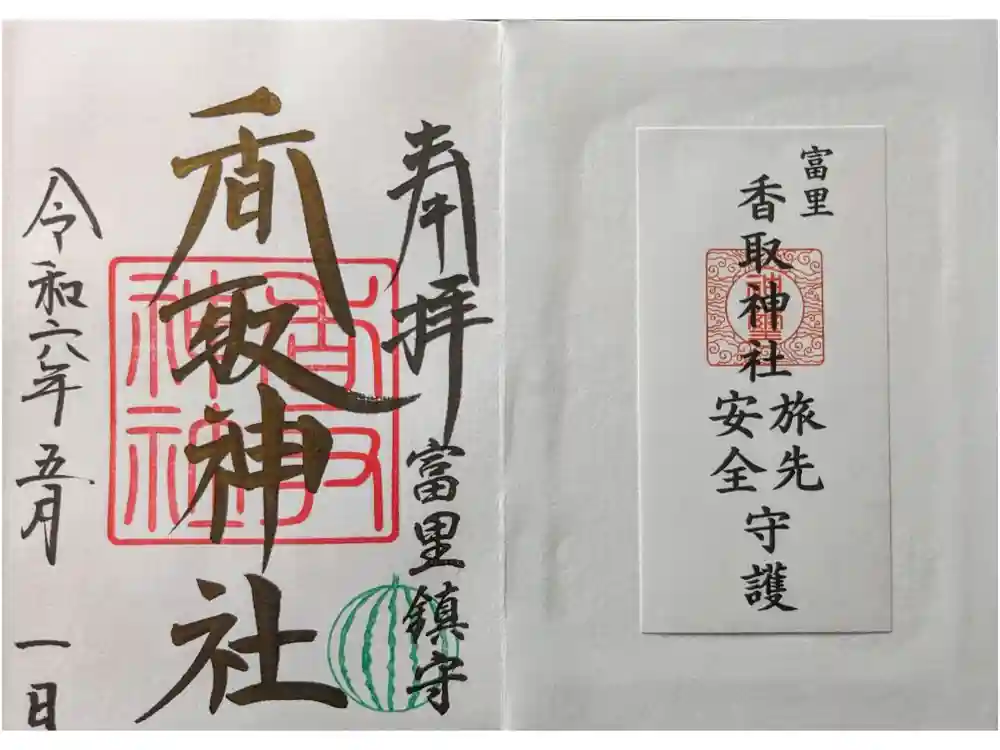 富里
香取神社
旅先
安全
守護
奉拝
富里鎮守
香取神社
香取
神社
令和六年五月一日